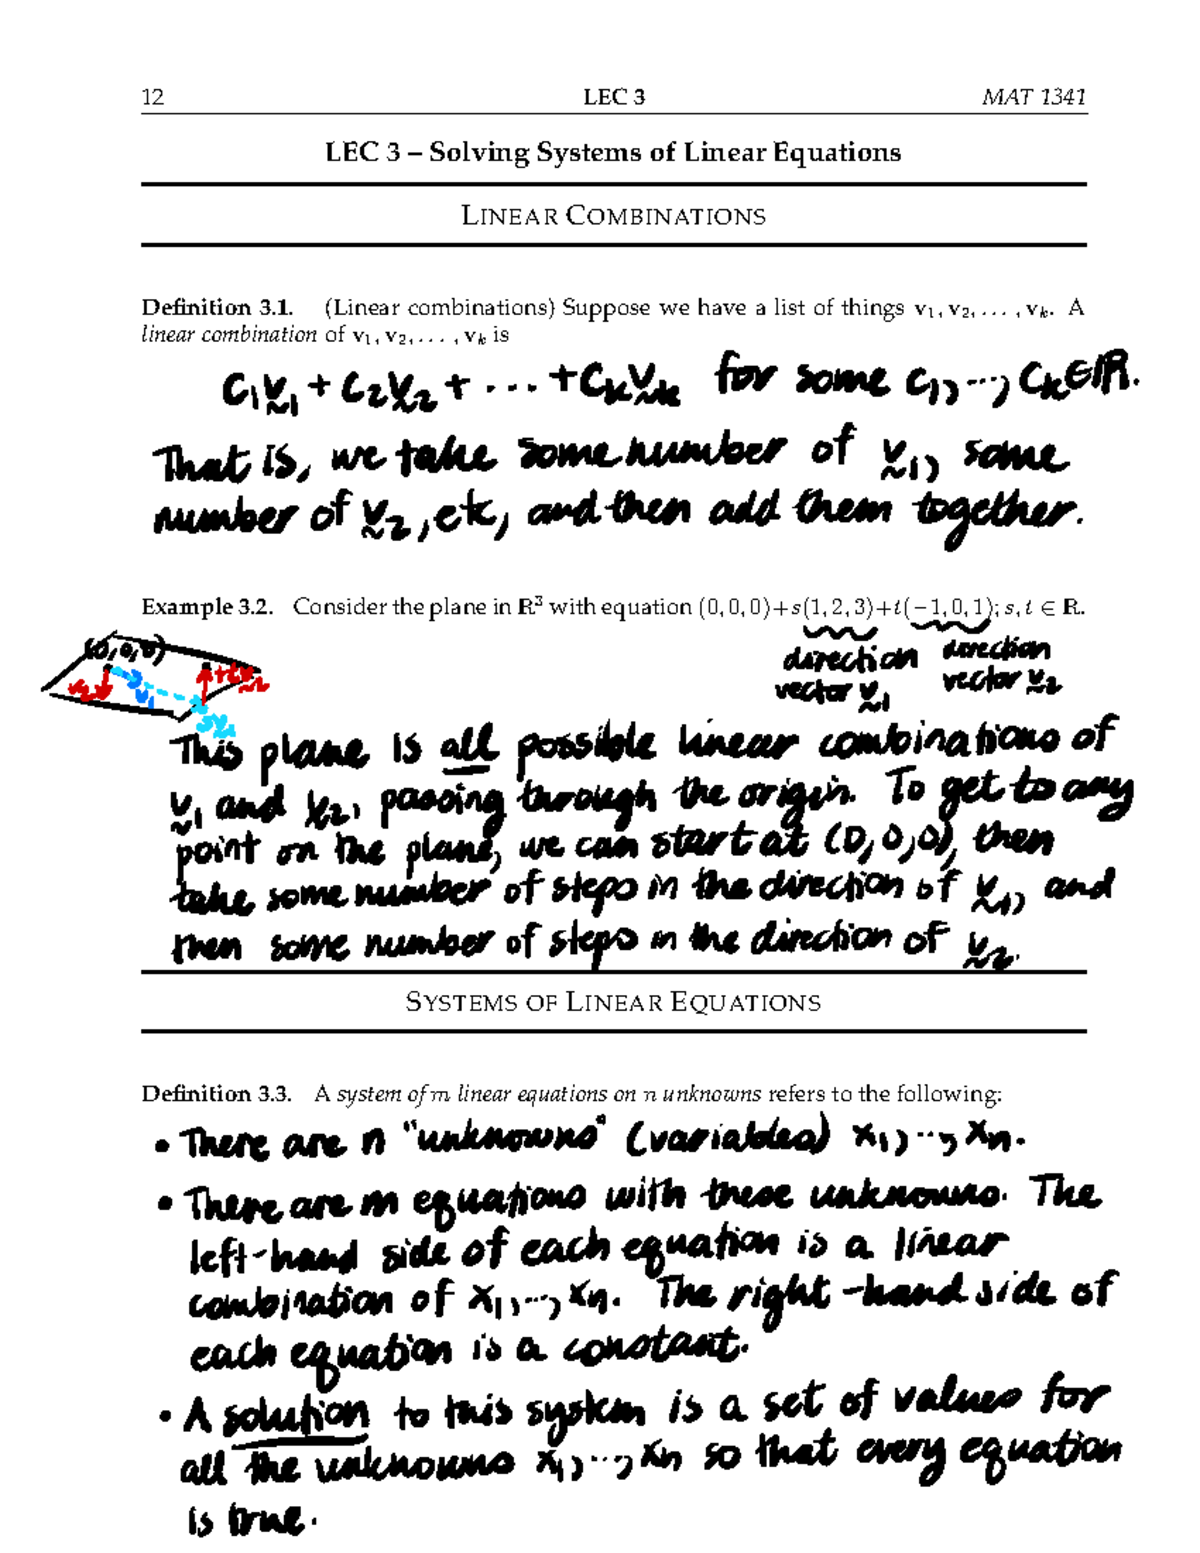 12 LEC 3 MAT 1341
LEC 3 – Solving Systems of Linear Equations
LINEAR COMBINATIONS
Definition 3.1. (Linear combinations) Suppose we have a list of things v₁, v₂, . . . , vₖ. A
linear combination of v₁, v₂, . . . , vₖ is
c₁v₁ + c₂v₂ + ... + cₖvₖ for some c₁, ..., cₖ ∈ ℝ.
That is, we take some number of v₁, some
number of v₂, etc, and then add them together.
Example 3.2. Consider the plane in R³ with equation (0, 0, 0)+s(1, 2, 3)+t(−1, 0, 1); s, t ∈ R.
(0,0,0)
direction direction
vector v₁ vector v₂
v₂ v₁ +tv₂
sv₁
This plane is all possible linear combinations of
v₁ and v₂, passing through the origin. To get to any
point on the plane, we can start at (0,0,0), then
take some number of steps in the direction of v₁, and
then some number of steps in the direction of v₂.
SYSTEMS OF LINEAR EQUATIONS
Definition 3.3. A system of m linear equations on n unknowns refers to the following:
• There are n "unknowns" (variables) x₁, ..., xₙ.
• There are m equations with these unknowns. The
left-hand side of each equation is a linear
combination of x₁, ..., xₙ. The right-hand side of
each equation is a constant.
• A solution to this system is a set of values for
all the unknowns x₁, ..., xₙ so that every equation
is true.